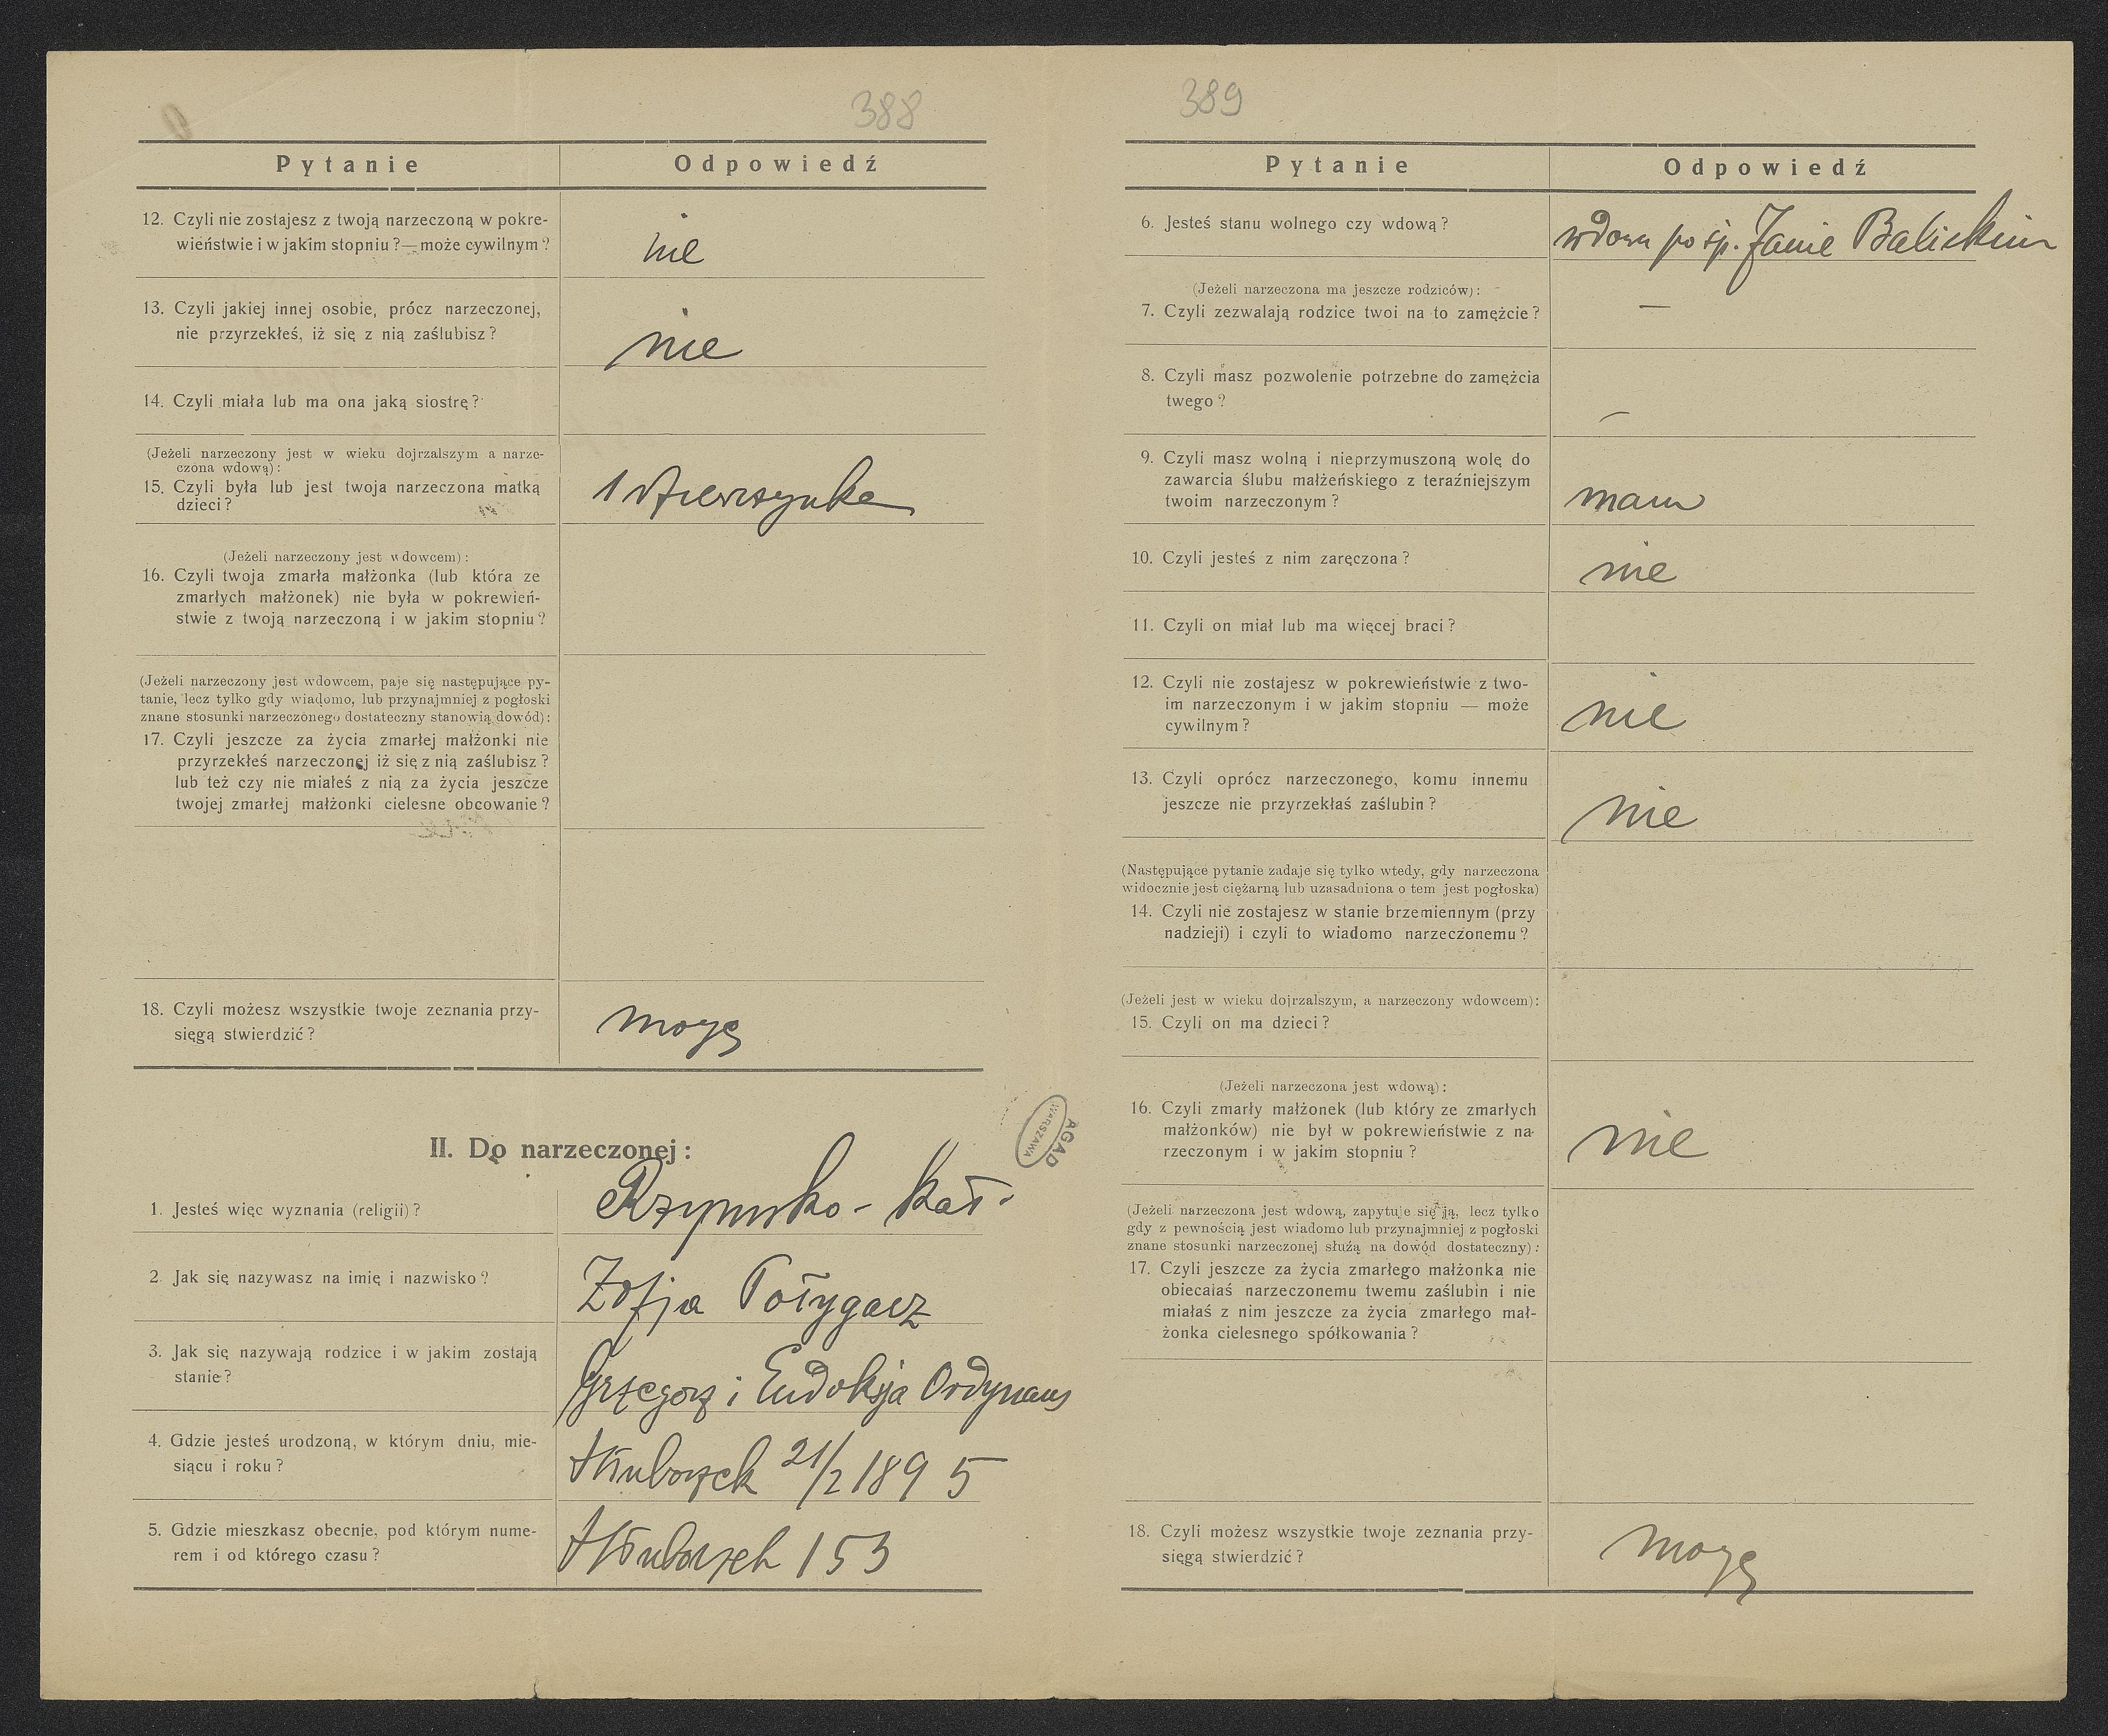 388
Pytanie Odpowiedź
12. Czyli nie zostajesz z twoją narzeczoną w pokre-
wieństwie i w jakim stopniu ?—może cywilnym ?
nie
13. Czyli jakiej innej osobie, prócz narzeczonej,
nie przyrzekłeś, iż się z nią zaślubisz ?
nie
14. Czyli miała lub ma ona jaką siostrę ?
(Jeżeli narzeczony jest w wieku dojrzalszym a narze-
czona wdową) :
15. Czyli była lub jest twoja narzeczona matką
dzieci ?
1 dziewczynka
(Jeżeli narzeczony jest wdowcem) :
16. Czyli twoja zmarła małżonka (lub która ze
zmarłych małżonek) nie była w pokrewień-
stwie z twoją narzeczoną i w jakim stopniu ?
(Jeżeli narzeczony jest wdowcem, paje się następujące py-
tanie, lecz tylko gdy wiadomo, lub przynajmniej z pogłoski
znane stosunki narzeczonego dostateczny stanowią dowód) :
17. Czyli jeszcze za życia zmarłej małżonki nie
przyrzekłeś narzeczonej iż się z nią zaślubisz ?
lub też czy nie miałeś z nią za życia jeszcze
twojej zmarłej małżonki cielesne obcowanie ?
18. Czyli możesz wszystkie twoje zeznania przy-
sięgą stwierdzić ?
mogę
II. Do narzeczonej :
1. Jesteś więc wyznania (religii) ?
Rzymsko - kat.
2. Jak się nazywasz na imię i nazwisko ?
Zofja Tołygacz
3. Jak się nazywają rodzice i w jakim zostają
stanie ?
Grzegorz i Eudoksja Ordynans
4. Gdzie jesteś urodzoną, w którym dniu, mie-
siącu i roku ?
21/2 1895
5. Gdzie mieszkasz obecnie, pod którym nume-
rem i od którego czasu ?
153
AGAD
WARSZAWA
389
Pytanie Odpowiedź
6. Jesteś stanu wolnego czy wdową ?
wdowa po śp. Janie Balickim
(Jeżeli narzeczona ma jeszcze rodziców) :
7. Czyli zezwalają rodzice twoi na to zamężcie ?
—
8. Czyli masz pozwolenie potrzebne do zamężcia
twego ?
—
9. Czyli masz wolną i nieprzymuszoną wolę do
zawarcia ślubu małżeńskiego z teraźniejszym
twoim narzeczonym ?
mam
10. Czyli jesteś z nim zaręczona ?
nie
11. Czyli on miał lub ma więcej braci ?
12. Czyli nie zostajesz w pokrewieństwie z two-
im narzeczonym i w jakim stopniu — może
cywilnym ?
nie
13. Czyli oprócz narzeczonego, komu innemu
jeszcze nie przyrzekłaś zaślubin ?
nie
(Następujące pytanie zadaje się tylko wtedy, gdy narzeczona
widocznie jest ciężarną lub uzasadniona o tem jest pogłoska)
14. Czyli nie zostajesz w stanie brzemiennym (przy
nadzieji) i czyli to wiadomo narzeczonemu ?
(Jeżeli jest w wieku dojrzalszym, a narzeczony wdowcem) :
15. Czyli on ma dzieci ?
(Jeżeli narzeczona jest wdową) :
16. Czyli zmarły małżonek (lub który ze zmarłych
małżonków) nie był w pokrewieństwie z na-
rzeczonym i w jakim stopniu ?
nie
(Jeżeli narzeczona jest wdową, zapytuje się ją, lecz tylko
gdy z pewnością jest wiadomo lub przynajmniej z pogłoski
znane stosunki narzeczonej służą na dowód dostateczny) :
17. Czyli jeszcze za życia zmarłego małżonka nie
obiecałaś narzeczonemu twemu zaślubin i nie
miałaś z nim jeszcze za życia zmarłego mał-
żonka cielesnego spółkowania ?
18. Czyli możesz wszystkie twoje zeznania przy-
sięgą stwierdzić ?
mogę